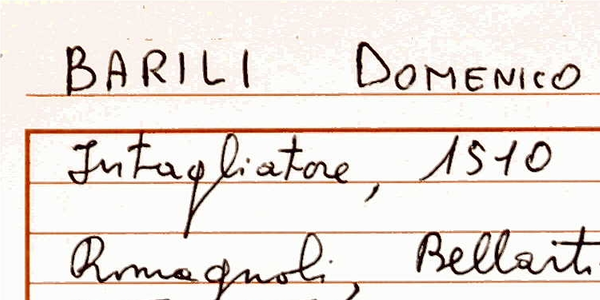 BARILI DOMENICO
Intagliatore, 1510
Romagnoli, Bellarti